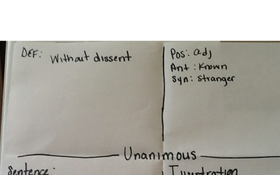 DEF: Without dissent
Pos: adj
Ant: Known
Syn: Stranger
Unanimous
Sentence:
Illustration